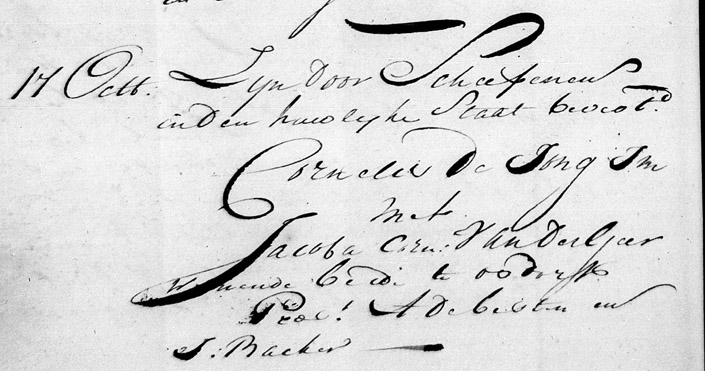 17 Octb. Zyn door Schepenen
in den huwlyke Staat bevestd
Cornelis De Jong Jm
met
Jacoba Corn: Van Der Geer
woonende beide te
Prae: A De en
J: Backer